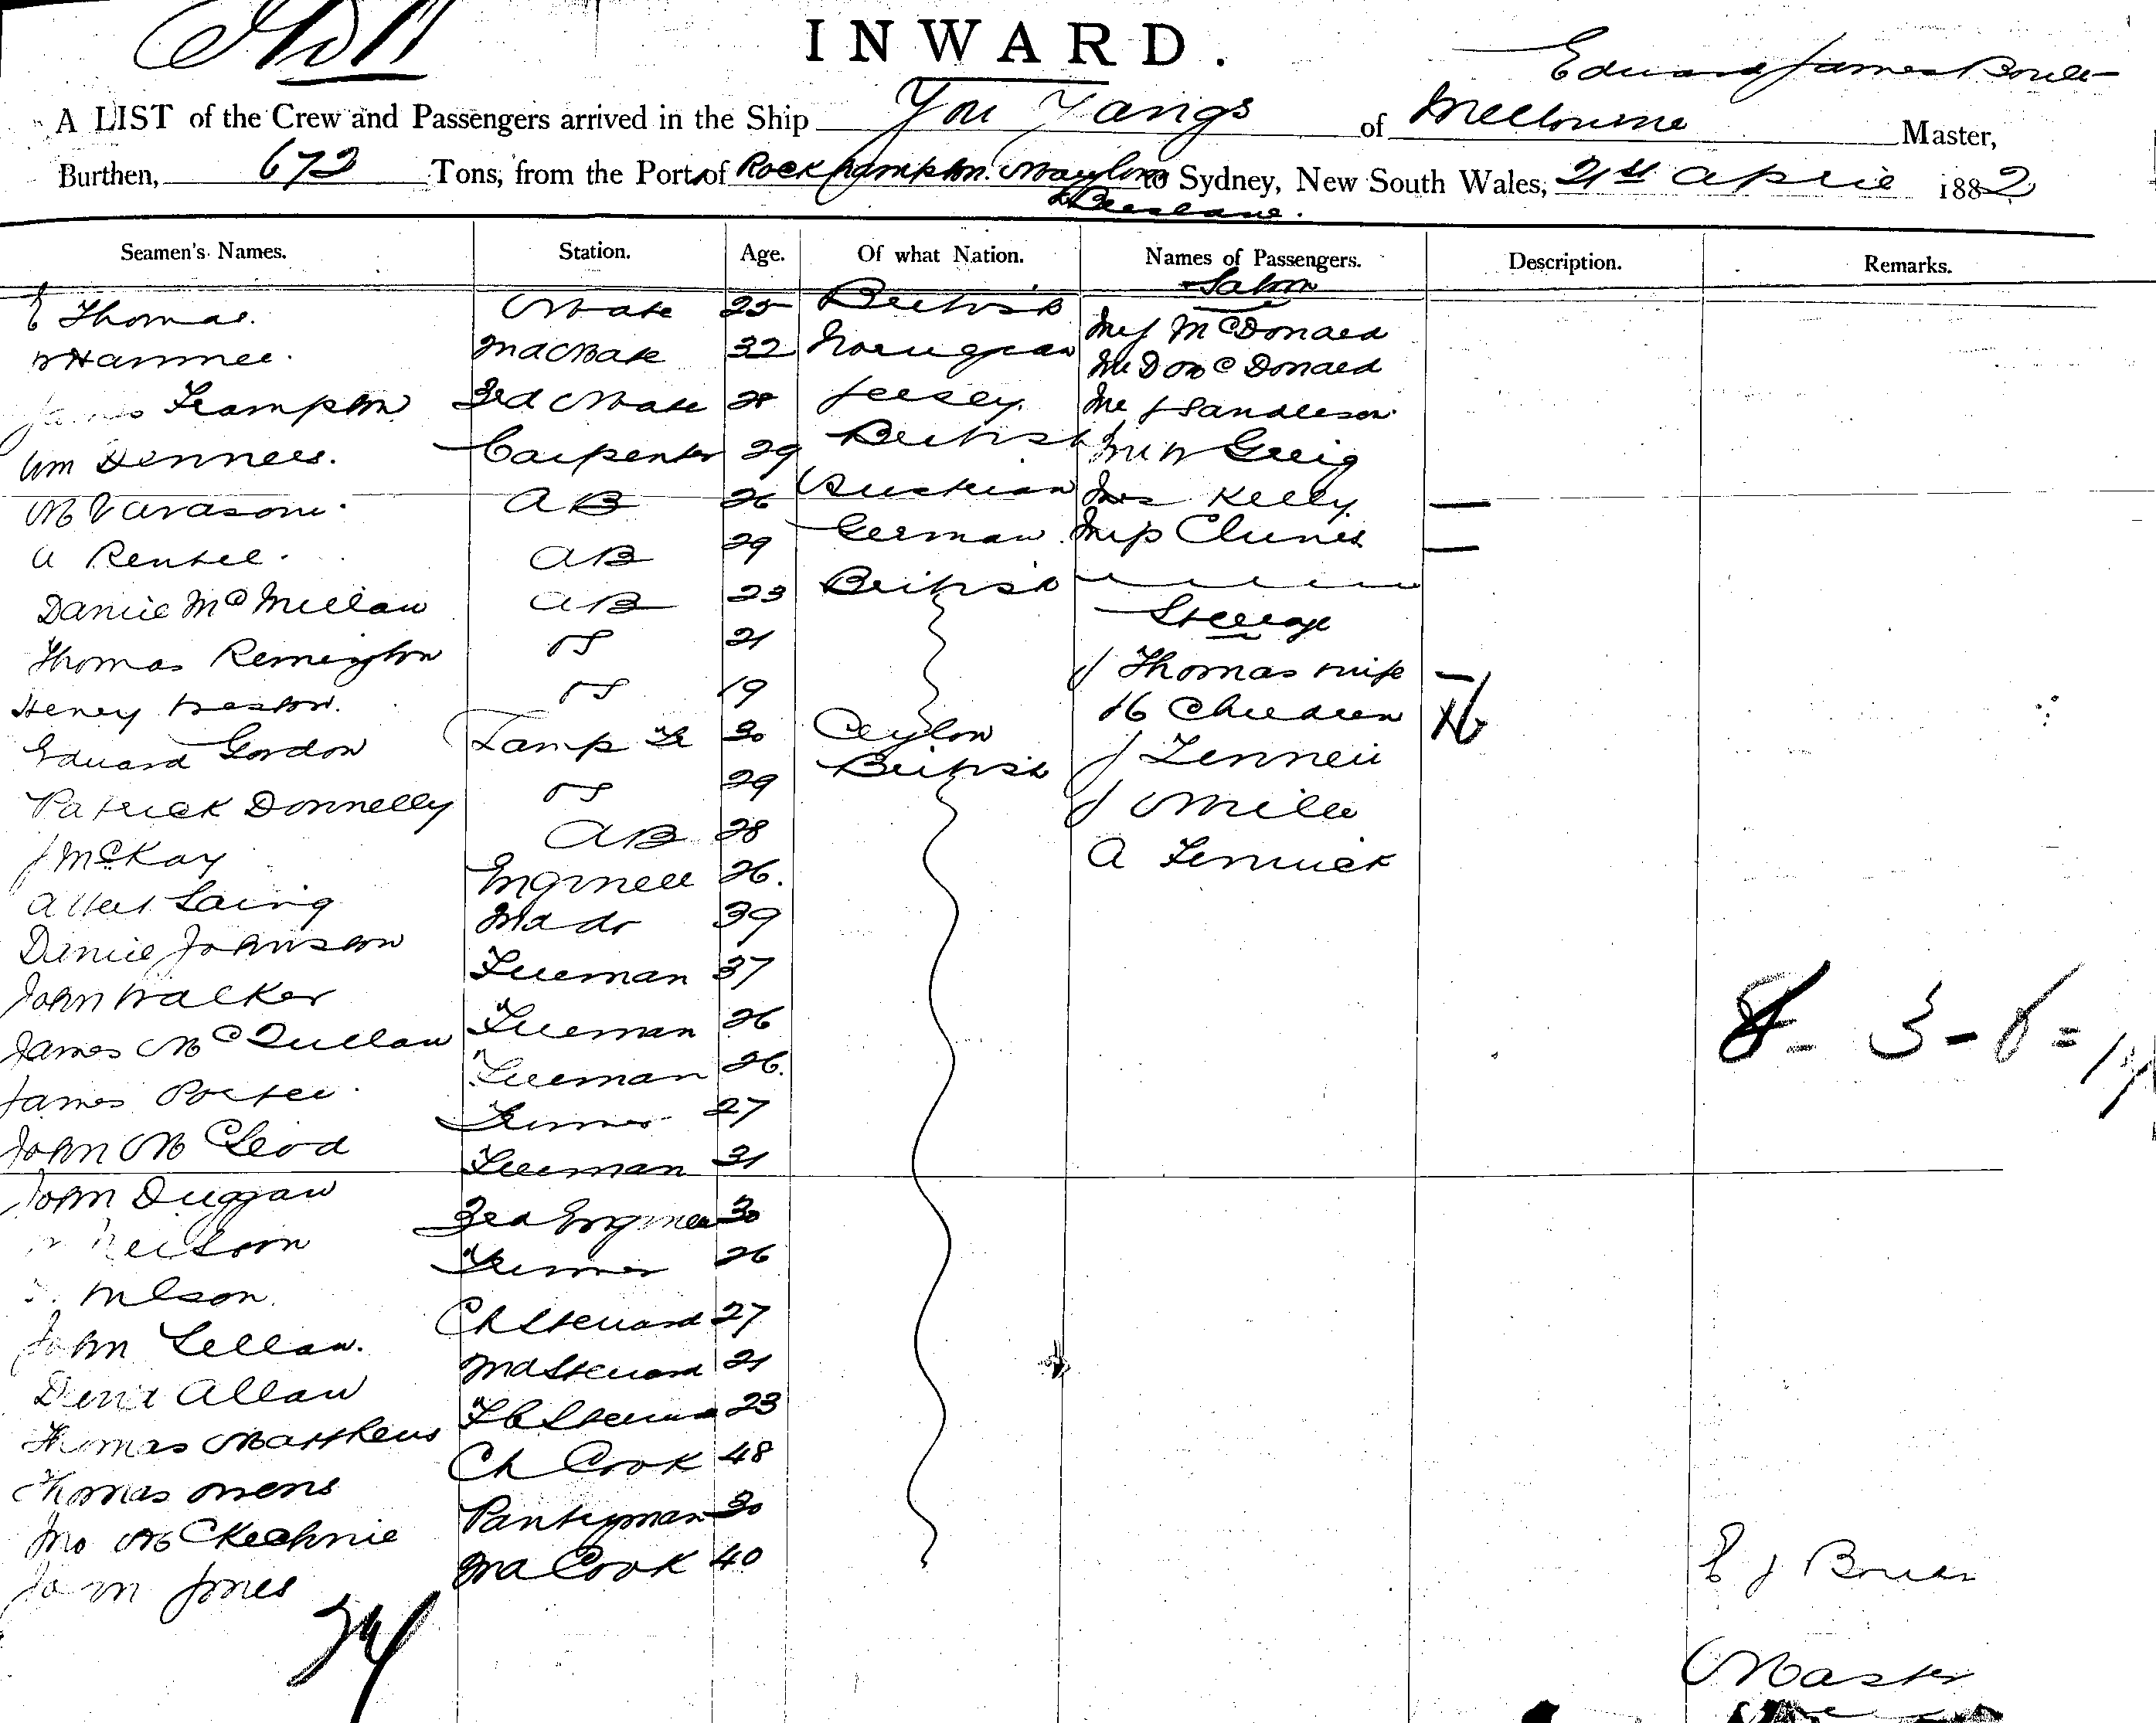 INWARD.
Edward James Boulter
A LIST of the Crew and Passengers arrived in the Ship You Yangs of Melbourne Master,
Burthen, 672 Tons, from the Port of Rockhampton to Sydney, New South Wales, 21st April 1882
& Brisbane.
Seamen's Names. Station. Age. Of what Nation. Names of Passengers. Description. Remarks.
Saloon
E Thomas. Mate 25 British Mr J McDonald
32 Norwegian Mr D McDonald
James Frampton 3rd Mate 28 Jersey Mr J Sanderson
Wm Carpenter 29 British Mr W Greig
AB 26 Austrian Mrs Kelly —
A AB 29 German Miss Clunes —
Daniel McMillan AB 23 British
Steerage
Thomas Remington OS 21 J Thomas wife —
Henry Weston. OS 19 & 6 Children
Edward Gordon Lamp Tr 30 Ceylon J
Patrick Donnelly OS 29 British J Miller
J McKay AB 28 A Fenwick
Albert Laing Engineer 26.
Daniel Johnson 2nd do 39
John Walker Fireman 37
James McQuillan Fireman 26
James Porter Fireman 26.
John McLeod Trimmer 27
John Duggan Fireman 31
Neilson 3rd Engineer 30
Wilson Trimmer 26
John Ch Steward 27
David Allan 2nd Steward 21
Thomas Matthews 23
Thomas Owens Ch Cook 48
Jno McKechnie Pantryman 30
John Jones 2nd Cook 40
8 - 3 - 6 = 17
E J Boulter
Master